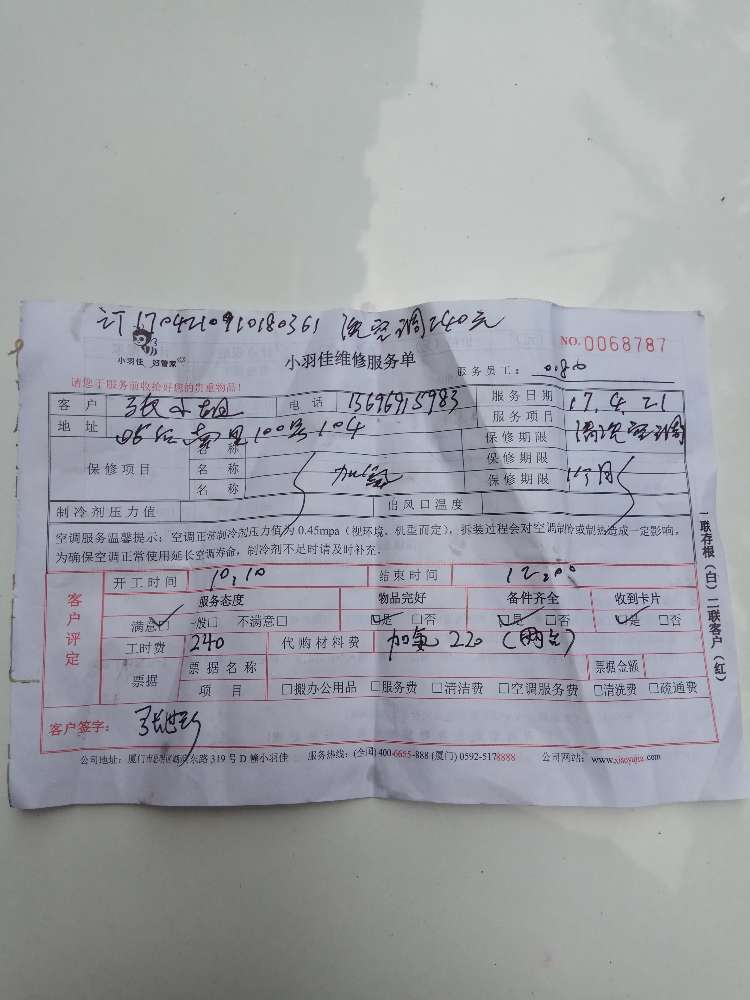 订 170421091018036 1 洗空调240元
小羽佳 好管家
小羽佳维修服务单
NO. 0068787
服务员工:
请您于服务前收拾好您的贵重物品!
客户 张小姐 电话 15696915983 服务日期 17.4.21
地址 100号104 服务项目 清洗空调
保修项目 名称 加氟 保修期限
名称 保修期限
名称 保修期限 1个月
制冷剂压力值 出风口温度
空调服务温馨提示:空调正常制冷剂压力值为 0.45mpa(视环境、机型而定),拆装过程会对空调制冷或制热造成一定影响,
为确保空调正常使用延长空调寿命,制冷剂不足时请及时补充.
开工时间 10.10 结束时间 12.00
客户评定
服务态度 物品完好 备件齐全 收到卡片
满意□ 一般□ 不满意□ □是 □否 □是 □否 □是 □否
工时费 240 代购材料费 加氟 220 (两台)
票据 票据名称 票据金额
项目 □搬办公用品 □服务费 □清洁费 □空调服务费 □清洗费 □疏通费
客户签字:
公司地址:厦门市 东路 319 号 D 幢小羽佳 服务热线:(全国) 400-6655-888 (厦门) 0592-5178888 公司网站:www.xiaoyujia.com
一联存根(白)二联客户(红)